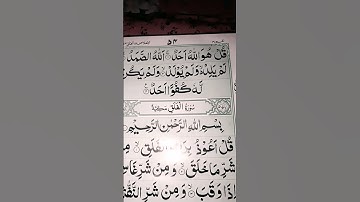 ۵۴
قُلْ هُوَ اللّٰهُ اَحَدٌ ۚ اَللّٰهُ الصَّمَدُ
لَمْ يَلِدْ ۙ وَلَمْ يُوْلَدْ ۙ وَلَمْ يَكُنْ
لَّهٗ كُفُوًا اَحَدٌ
سُوْرَةُ الْفَلَقِ مَكِّيَّةٌ
بِسْمِ اللّٰهِ الرَّحْمٰنِ الرَّحِيْمِ
قُلْ اَعُوْذُ بِرَبِّ الْفَلَقِ ۙ مِنْ
شَرِّ مَا خَلَقَ ۙ وَمِنْ شَرِّ غَاسِ
اِذَا وَقَبَ ۙ وَمِنْ شَرِّ النَّفّٰ